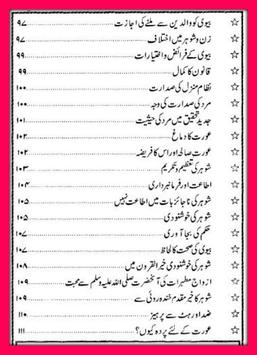 ☆ بیوی کو والدین سے ملنے کی اجازت ۹۷
☆ زن و شوہر میں اختلاف ۹۷
☆ بیوی کے فرائض و اختیارات ۹۹
☆ قانون کا کمال ۹۹
☆ نظام منزل کی صدارت ۱۰۰
☆ مرد کی صدارت کی وجہ ۱۰۰
☆ جدید تحقیق میں مرد کی حیثیت ۱۰۱
☆ عورت کا دماغ ۱۰۲
☆ عورت صالحہ اور اس کا فریضہ ۱۰۲
☆ شوہر کی تعظیم و تکریم ۱۰۳
☆ اطاعت اور فرمانبرداری ۱۰۴
☆ شوہر کی ناجائز بات میں اطاعت نہیں ۱۰۵
☆ شوہر کی خوشنودی ۱۰۶
☆ حکم کی بجا آوری ۱۰۷
☆ بیوی کی صحت کا لحاظ ۱۰۷
☆ شوہر کی خوشنودی خیر القرون میں ۱۰۸
☆ ازواج مطہرات کی آنحضرت صلی اللہ علیہ وسلم سے محبت ۱۰۹
☆ شوہر کا خیر مقدم خندہ روئی سے ۱۰۹
☆ ضد اور ہٹ سے پرہیز ۱۱۰
☆ عورت کے لئے پردہ کیوں؟ ۱۱۱